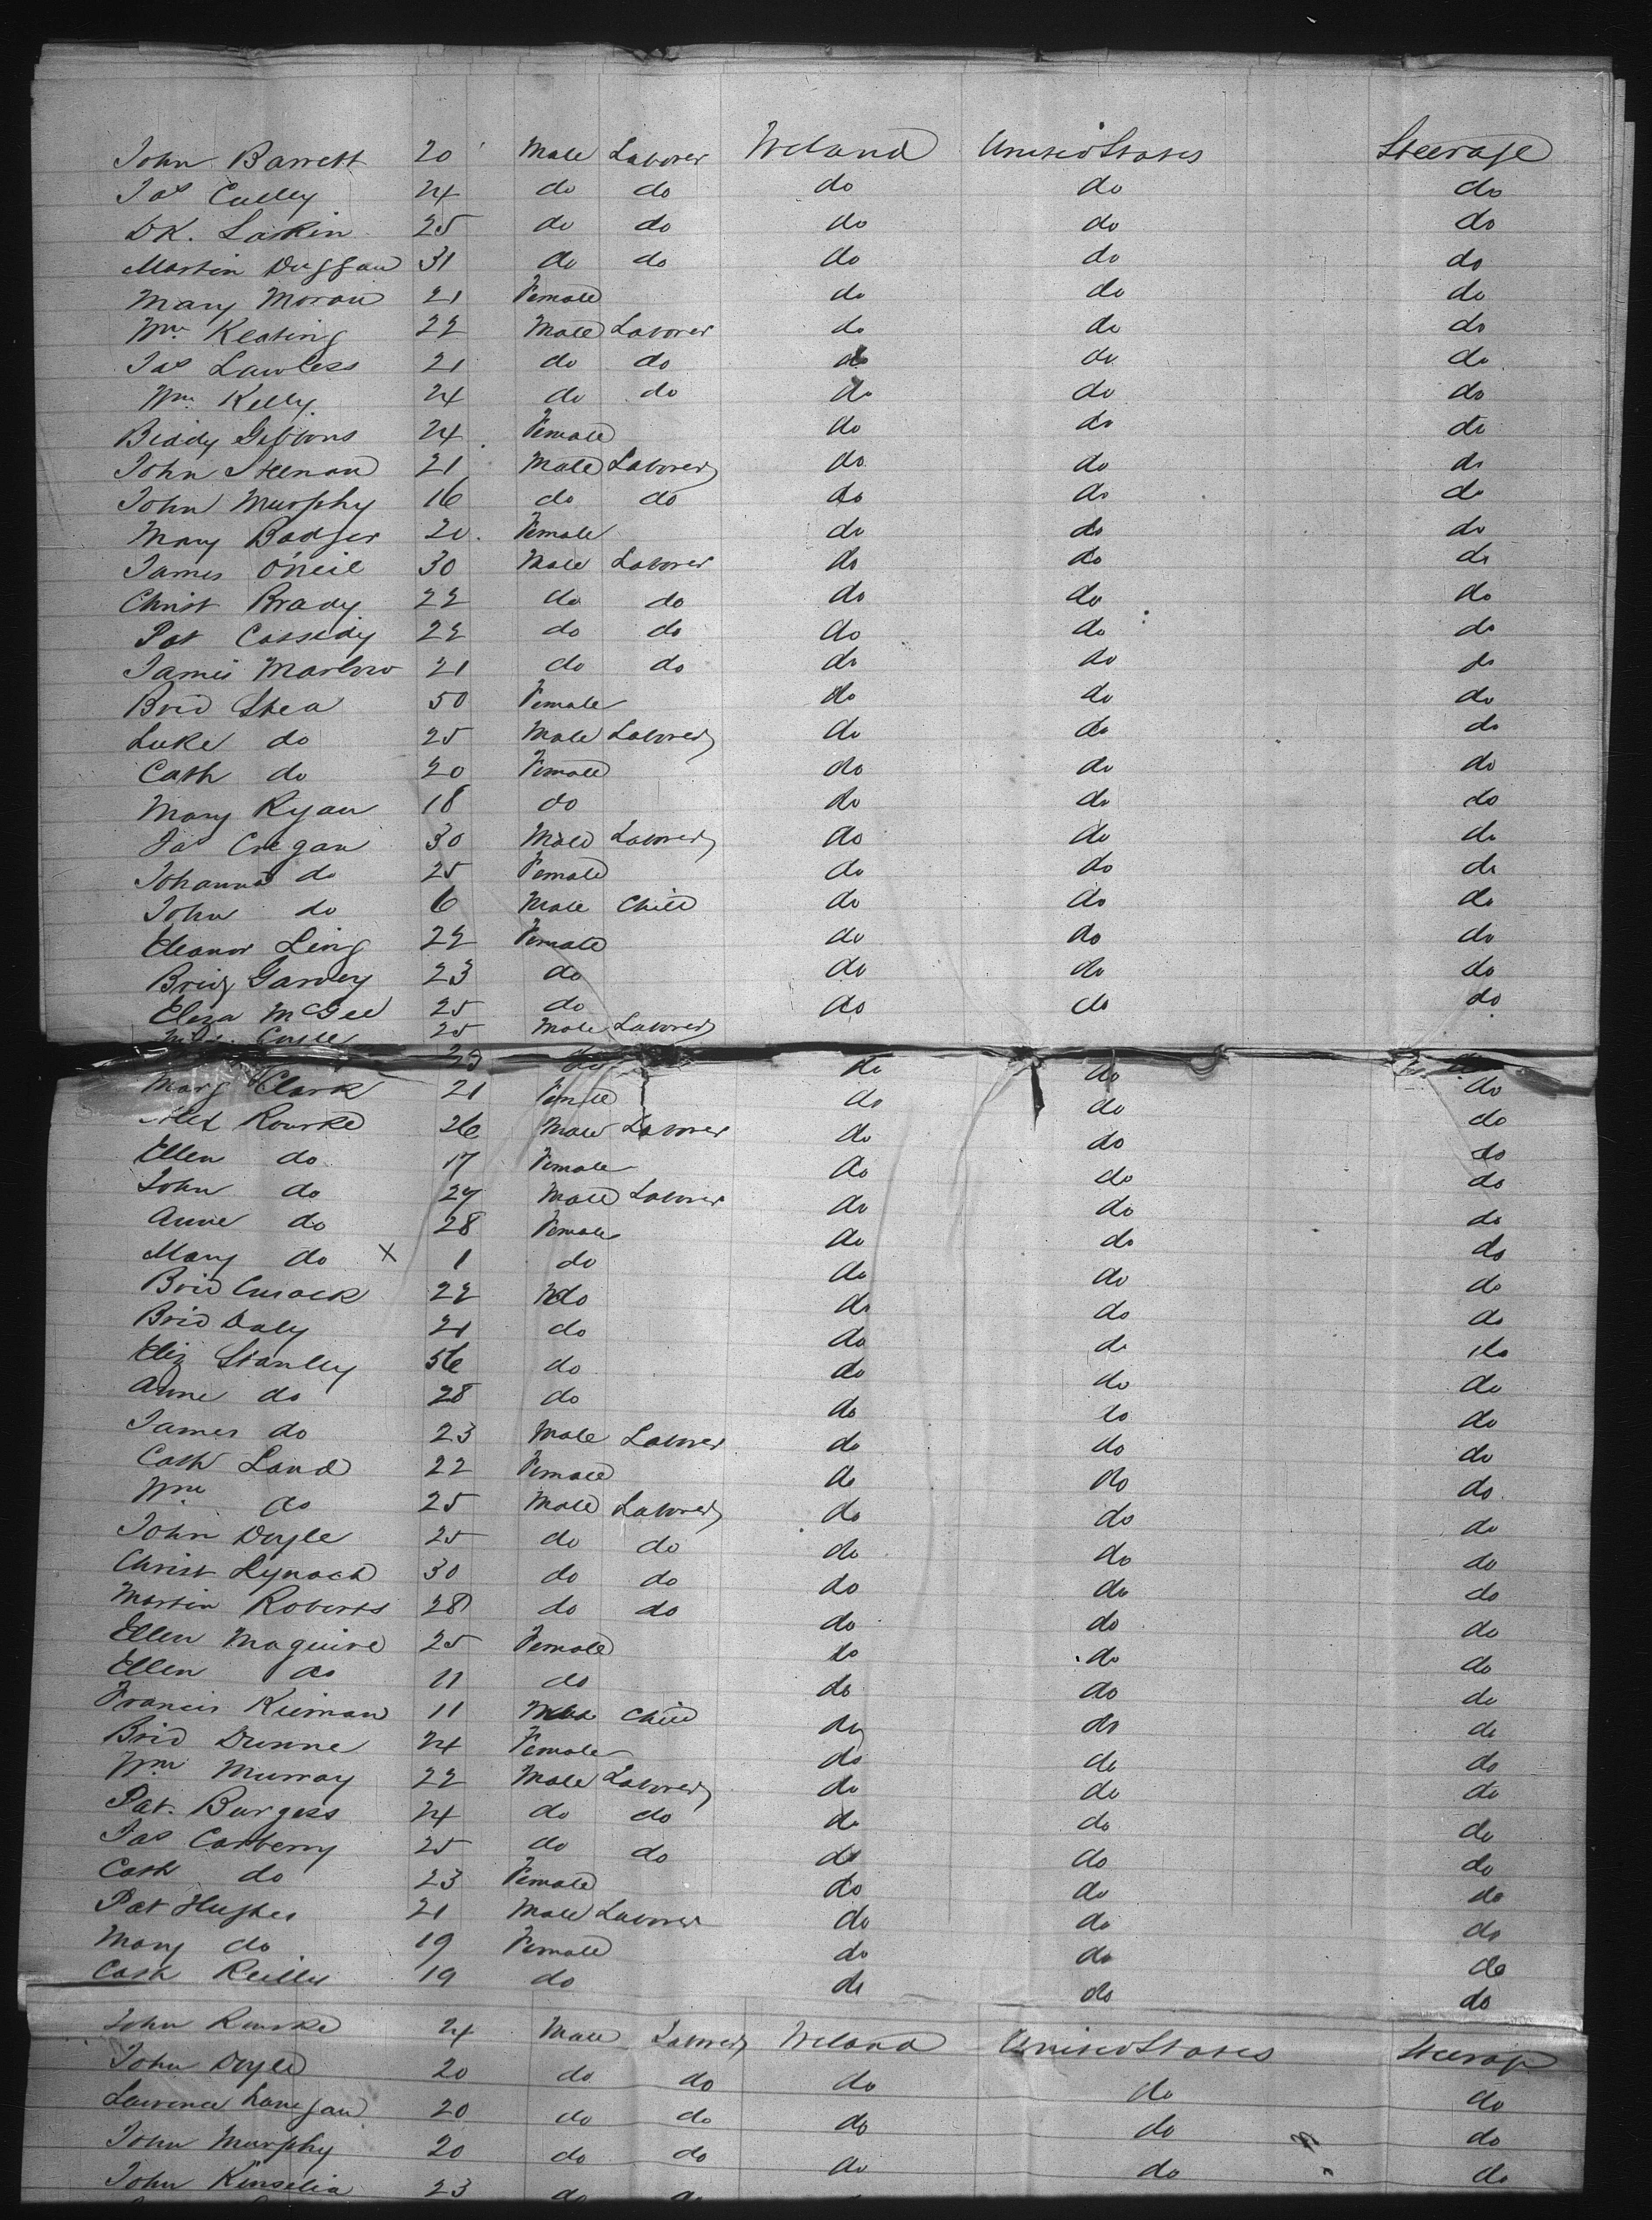 John Barrett 20 Male Laborer Ireland United States Steerage
Jas Culley 24 do do do do do
DK. Larkin 25 do do do do do
Martin Duggan 31 do do do do do
Mary Moran 21 Female do do do
Wm. Keating 22 Male Laborer do do do
Jas Lawless 21 do do do do do
Wm. Kelly 24 do do do do do
Biddy Gibbons 24 Female do do do
John Heenan 21 Male Laborer do do do
John Murphy 16 do do do do do
Mary Badger 20 Female do do do
James O'Neil 30 Male Laborer do do do
Christ Brady 22 do do do do do
Pat Cassidy 22 do do do do do
James Marlow 21 do do do do do
Brid Shea 50 Female do do do
Luke do 25 Male Laborer do do do
Cath do 20 Female do do do
Mary Ryan 18 do do do do
Jas Cregan 30 Male Laborer do do do
Johanna do 25 Female do do do
John do 6 Male Child do do do
Eleanor Ling 22 Female do do do
Bridg Garvey 23 do do do do
Eliza McGee 25 do do do do
25 Male Laborer
do do do
Marg Clark 21 Female do do do
Rourke 26 Male Laborer do do do
Ellen do 17 Female do do do
John do 27 Male Laborer do do do
Anne do 28 Female do do do
Mary do X 1 do do do do
Brid Cusack 22 do do do do
Brid Daly 21 do do do do
Eliz Stanley 56 do do do do
Anne do 28 do do do do
James do 23 Male Laborer do do do
Cath Land 22 Female do do do
Wm do 25 Male Laborer do do do
John Doyle 25 do do do do do
Christ Lynach 30 do do do do do
Martin Roberts 28 do do do do do
Ellen Maguire 25 Female do do do
Ellen do 11 do do do do
Francis Kiernan 11 Male Child do do do
Brid Dunne 24 Female do do do
Wm Murray 22 Male Laborer do do do
Pat. Burgess 24 do do do do do
Jas Carberry 25 do do do do do
Cath do 23 Female do do do
Pat Hughes 21 Male Laborer do do do
Mary do 19 Female do do do
Cath Reilly 19 do do do do
John Rourke 24 Male Laborer Ireland United States Steerage
John Doyle 20 do do do do do
Lawrence 20 do do do do do
John Murphy 20 do do do do do
John Kinselia 23 do